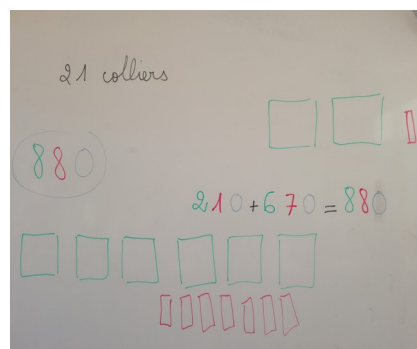 21 colliers
880
210+670=880